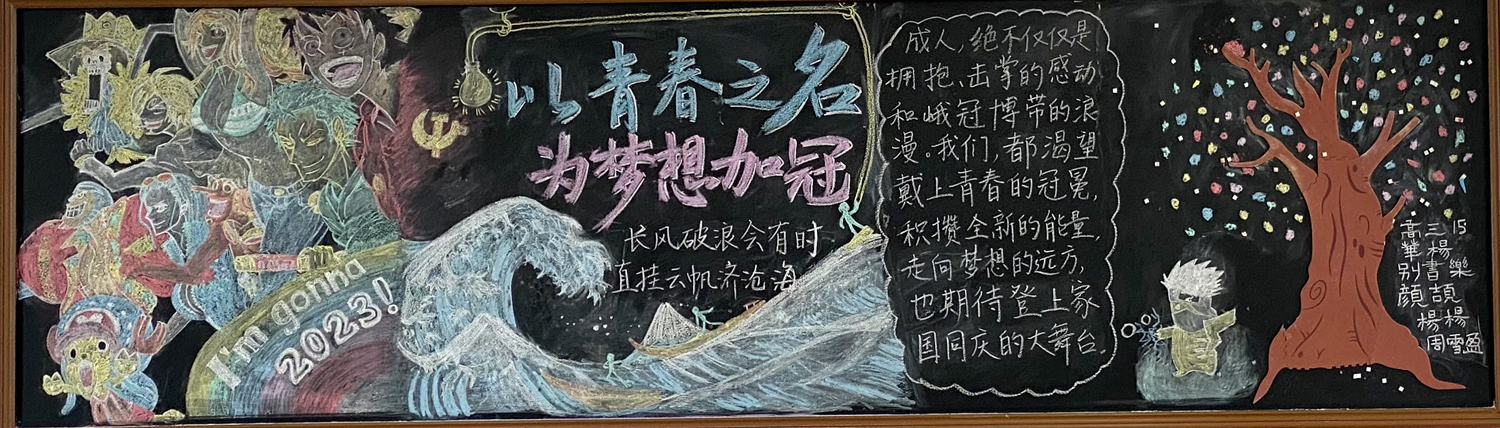 I'm gonna
2023!
以青春之名
为梦想加冠
长风破浪会有时
直挂云帆济沧海
成人,绝不仅仅是
拥抱、击掌的感动
和峨冠博带的浪
漫。我们,都渴望
戴上青春的冠冕,
积攒全新的能量,
走向梦想的远方,
也期待登上家
国同庆的大舞台。
高三15
華楊
别書樂
顔頡
楊楊
周雪盈